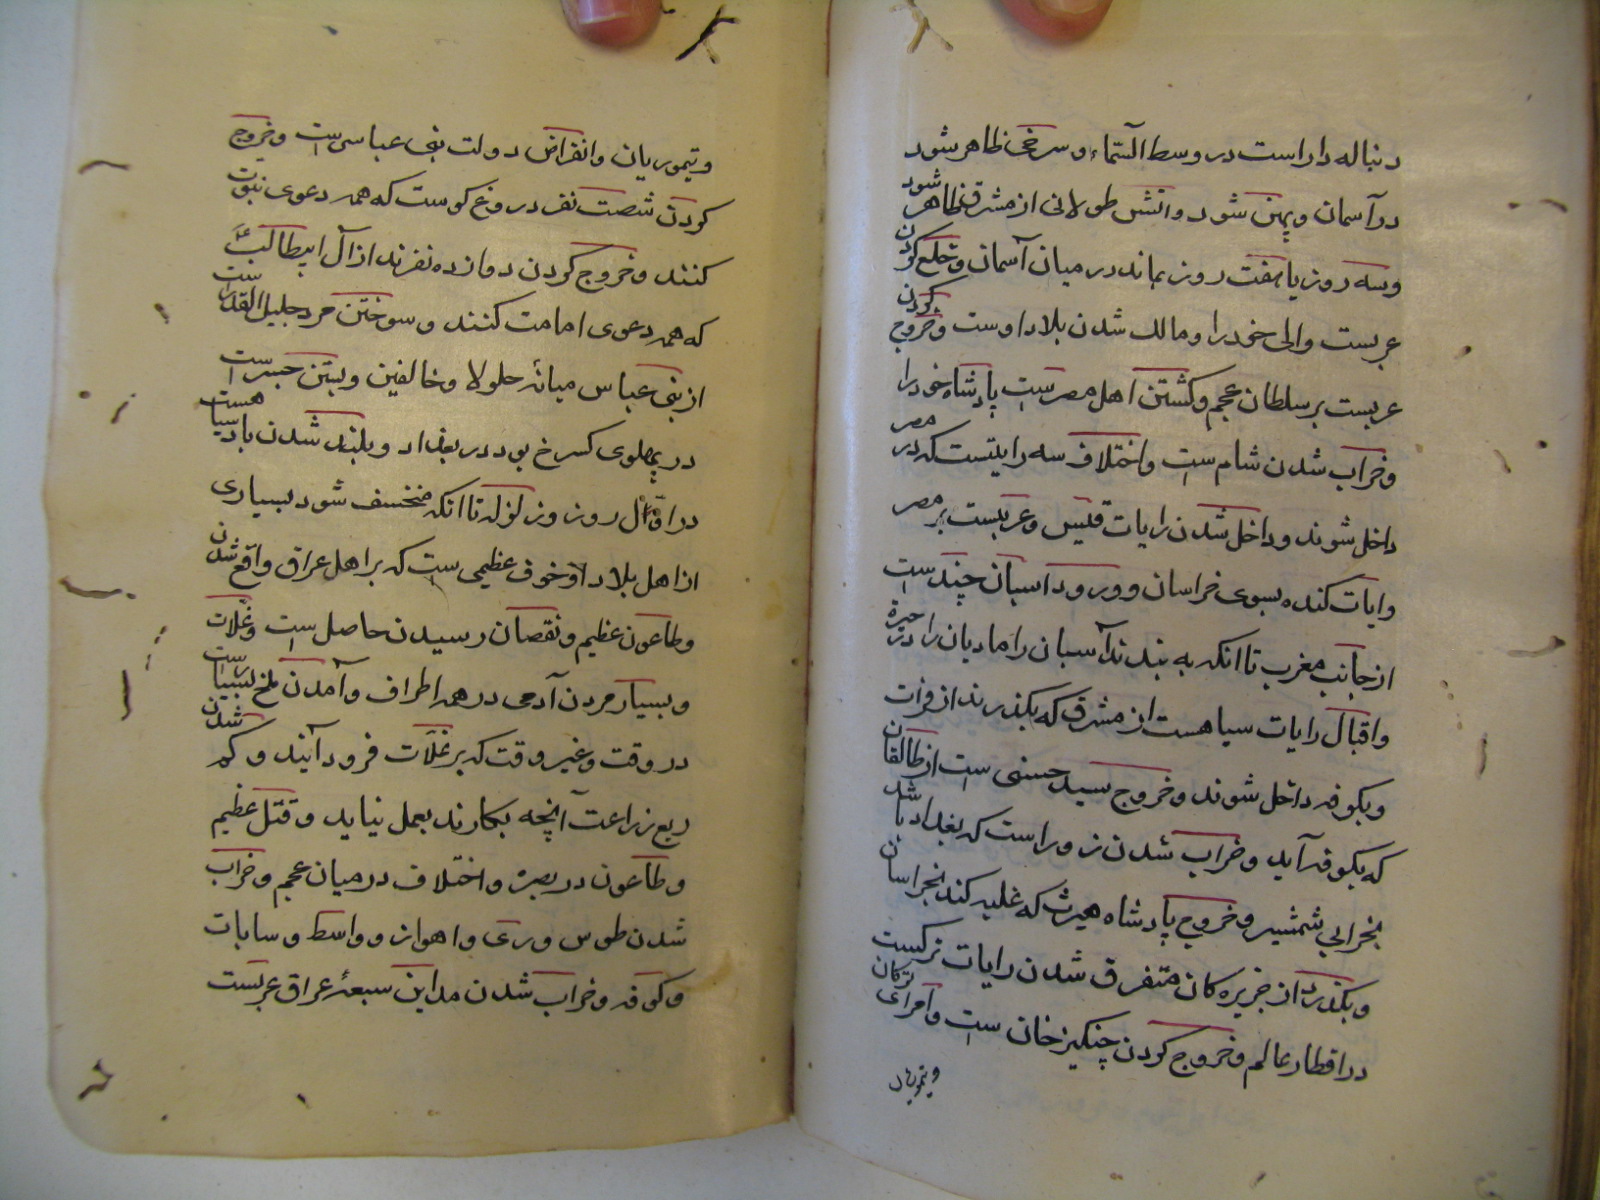 دنباله دار است در وسط السماء و سرخی ظاهر شود
در آسمان و پهن شود و اتش طولانی از مشرق ظاهر شود
و سه روز یا هفت روز بماند در میان آسمان و خلع کردن
عربست والی خود را و مالک شدن بلاد اوست و خروج کردن
عربست بر سلطان عجم و کشتن اهل مصرست پادشاه خود را
و خراب شدن شام است و اختلاف سه رایتست که در مصر
داخل شوند و داخل شدن رایات قیس و عربست بر مصر
و ایات کنده بسوی خراسان و ورود اسبان چندست
از جانب مغرب تا انکه به بندند آسبان را مادیان را در حیره
و اقبال رایات سیاهست از مشرق که بگذرند از فرات
و بکوفه داخل شوند و خروج سید حسنی است از طالقان
که بکوفه آید و خراب شدن زوراست که بغداد باشد
بخرابی شمشیر و خروج پادشاه که غلبه کند بخراسان
و بگذرد از جزیره کان متفرق شدن رایات ترکست
در اقطار عالم و خروج کردن چنکیز خان است و امرای ترکان
و تیموریان
و تیموریان و انقراض دولت بنی عباسی ست و خروج
کردن شصت نفر دروغ کوست که همه دعوی نبوت
کنند و خروج کردن دوازده نفرند از آل ابیطالب
که همه دعوی امامت کنند و سوختن مرد جلیل القدر ست
از بنی عباس میانه حلولا و خالفین و بستن جسرست
در پهلوی کرخ بود در بغداد و بلند شدن باد سیاهست
در اول روز و زلزله تا انکه منخسف شود بسیاری
از اهل بلاد او خوف عظیمی ست که بر اهل عراق واقع شدن
و طاعون عظیم و نقصان رسیدن حاصل ست و غلات
و بسیار مردن آدمی در همه اطراف و آمدن ملخ بسیارست
در وقت و غیر وقت که بر غلات فرود آیند و کم شدن
ریع زراعت آنچه بکارند بعمل نیاید و قتل عظیم
و طاعون در بصره و اختلاف در میان عجم و خراب
شدن طوس و ری و اهواز و واسط و سابات
و کوفه و خراب شدن مداین سبعهٔ عراق عربست